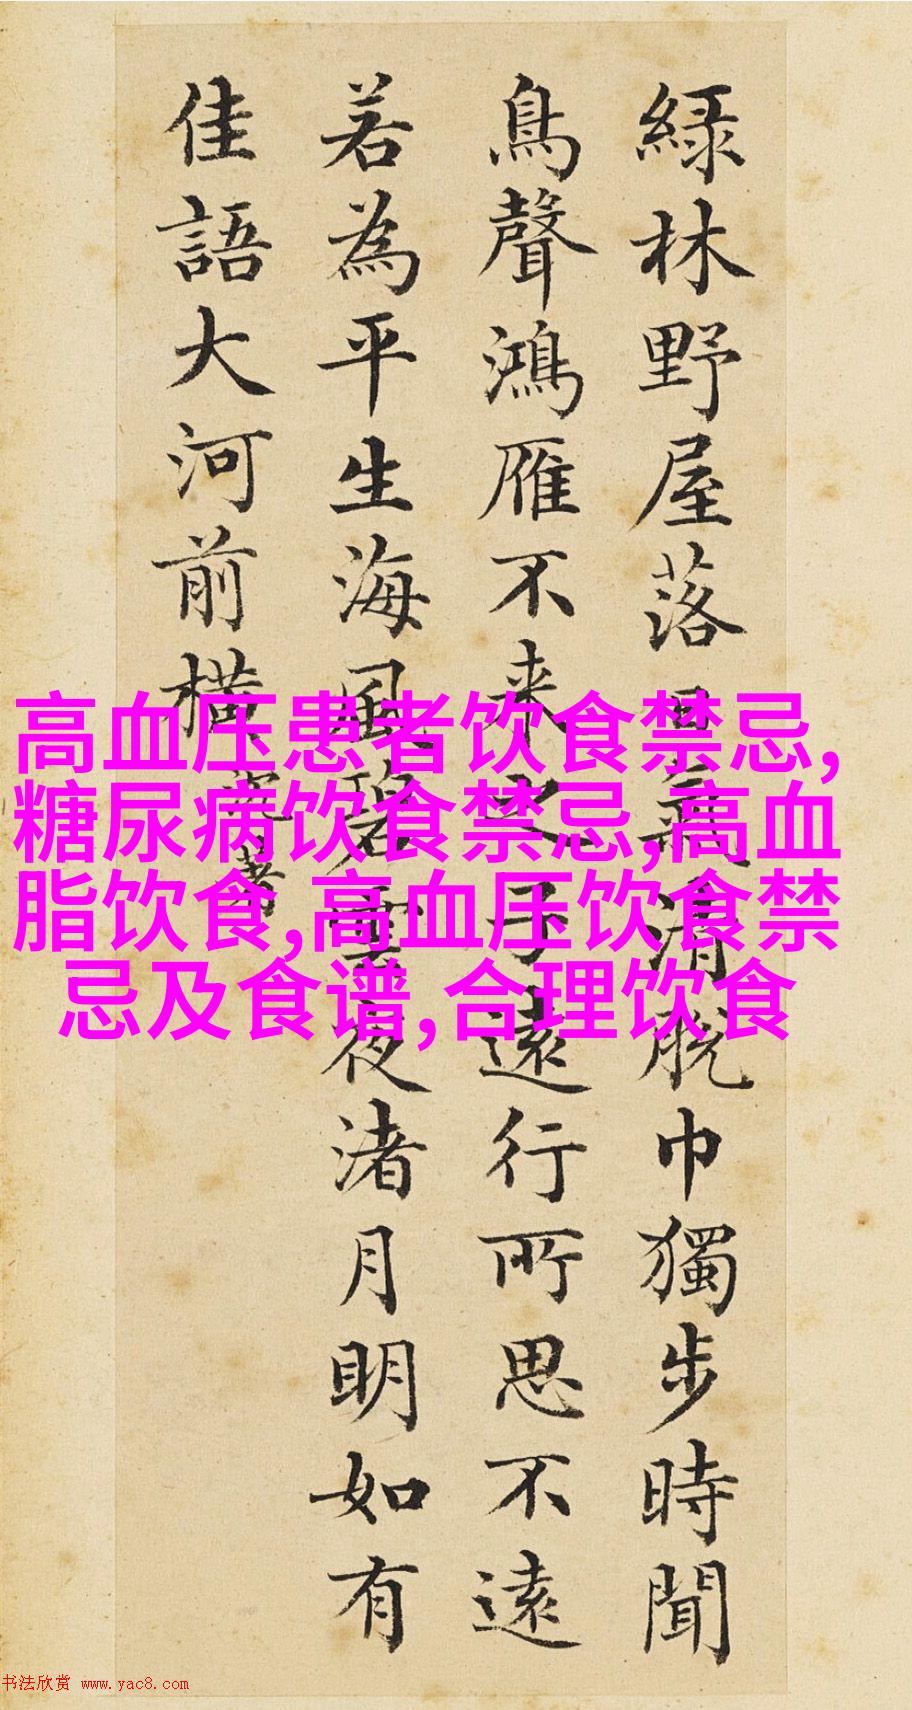 綠林野屋落日氣清脫巾獨步時聞
鳥聲鴻雁不来之子遠行所思不遠
若為平生海風碧雲夜渚月明如有
佳語大河前橫
高血压患者饮食禁忌,
糖尿病饮食禁忌,高血
脂饮食,高血压饮食禁
忌及食谱,合理饮食
书法欣赏 www.yac8.com